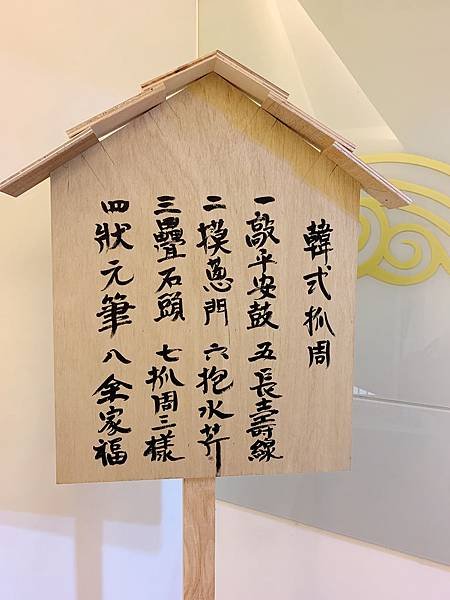 韓式抓周
一敲平安鼓 五長壽線
二摸蔥門 六抱水芹
三疊石頭 七抓周三樣
四狀元筆 八全家福